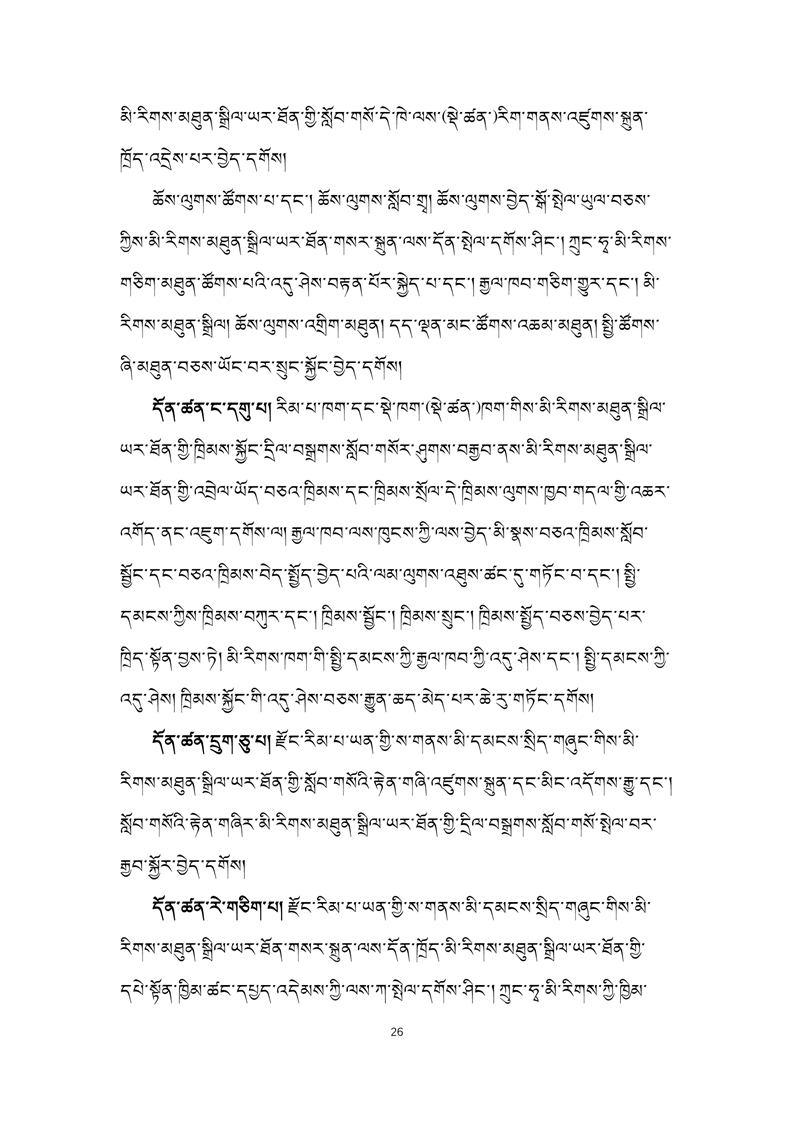 མི་རིགས་མཐུན་སྒྲིལ་ཡར་ཐོན་གྱི་སློབ་གསོ་དེ་ཁེ་ལས་(སྡེ་ཚན་)རིག་གནས་འཛུགས་སྐྲུན་
ཁྲོད་འདྲེས་པར་བྱེད་དགོས།
ཆོས་ལུགས་ཚོགས་པ་དང་། ཆོས་ལུགས་སློབ་གྲྭ། ཆོས་ལུགས་བྱེད་སྒོ་སྤེལ་ཡུལ་བཅས་
ཀྱིས་མི་རིགས་མཐུན་སྒྲིལ་ཡར་ཐོན་གསར་སྐྲུན་ལས་དོན་སྤེལ་དགོས་ཤིང་། ཀྲུང་ཧྭ་མི་རིགས་
གཅིག་མཐུན་ཚོགས་པའི་འདུ་ཤེས་བརྟན་པོར་སྐྱེད་པ་དང་། རྒྱལ་ཁབ་གཅིག་གྱུར་དང་། མི་
རིགས་མཐུན་སྒྲིལ། ཆོས་ལུགས་འགྲིག་མཐུན། དད་ལྡན་མང་ཚོགས་འཆམ་མཐུན། སྤྱི་ཚོགས་
ཞི་མཐུན་བཅས་ཡོང་བར་སྲུང་སྐྱོང་བྱེད་དགོས།
དོན་ཚན་ང་དགུ་པ། རིམ་པ་ཁག་དང་སྡེ་ཁག་(སྡེ་ཚན་)ཁག་གིས་མི་རིགས་མཐུན་སྒྲིལ་
ཡར་ཐོན་གྱི་ཁྲིམས་སྐྱོང་དྲིལ་བསྒྲགས་སློབ་གསོར་ཤུགས་བརྒྱབ་ནས་མི་རིགས་མཐུན་སྒྲིལ་
ཡར་ཐོན་གྱི་འབྲེལ་ཡོད་བཅའ་ཁྲིམས་དང་ཁྲིམས་སྲོལ་དེ་ཁྲིམས་ལུགས་ཁྱབ་གདལ་གྱི་འཆར་
འགོད་ནང་འཇུག་དགོས་ལ། རྒྱལ་ཁབ་ལས་ཁུངས་ཀྱི་ལས་བྱེད་མི་སྣས་བཅའ་ཁྲིམས་སློབ་
སྦྱོང་དང་བཅའ་ཁྲིམས་བེད་སྤྱོད་བྱེད་པའི་ལམ་ལུགས་འཐུས་ཚང་དུ་གཏོང་བ་དང་། སྤྱི་
དམངས་ཀྱིས་ཁྲིམས་བཀུར་དང་། ཁྲིམས་སྦྱོང་། ཁྲིམས་སྲུང་། ཁྲིམས་སྤྱོད་བཅས་བྱེད་པར་
ཁྲིད་སྟོན་བྱས་ཏེ། མི་རིགས་ཁག་གི་སྤྱི་དམངས་ཀྱི་རྒྱལ་ཁབ་ཀྱི་འདུ་ཤེས་དང་། སྤྱི་དམངས་ཀྱི་
འདུ་ཤེས། ཁྲིམས་སྐྱོང་གི་འདུ་ཤེས་བཅས་རྒྱུན་ཆད་མེད་པར་ཆེ་རུ་གཏོང་དགོས།
དོན་ཚན་དྲུག་ཅུ་པ། རྫོང་རིམ་པ་ཡན་གྱི་ས་གནས་མི་དམངས་སྲིད་གཞུང་གིས་མི་
རིགས་མཐུན་སྒྲིལ་ཡར་ཐོན་གྱི་སློབ་གསོའི་རྟེན་གཞི་འཛུགས་སྐྲུན་དང་མིང་འདོགས་རྒྱུ་དང་།
སློབ་གསོའི་རྟེན་གཞིར་མི་རིགས་མཐུན་སྒྲིལ་ཡར་ཐོན་གྱི་དྲིལ་བསྒྲགས་སློབ་གསོ་སྤེལ་བར་
རྒྱབ་སྐྱོར་བྱེད་དགོས།
དོན་ཚན་རེ་གཅིག་པ། རྫོང་རིམ་པ་ཡན་གྱི་ས་གནས་མི་དམངས་སྲིད་གཞུང་གིས་མི་
རིགས་མཐུན་སྒྲིལ་ཡར་ཐོན་གསར་སྐྲུན་ལས་དོན་ཁྲོད་མི་རིགས་མཐུན་སྒྲིལ་ཡར་ཐོན་གྱི་
དཔེ་སྟོན་ཁྱིམ་ཚང་དཔྱད་འདེམས་ཀྱི་ལས་ཀ་སྤེལ་དགོས་ཤིང་། ཀྲུང་ཧྭ་མི་རིགས་ཀྱི་ཁྱིམ་
26